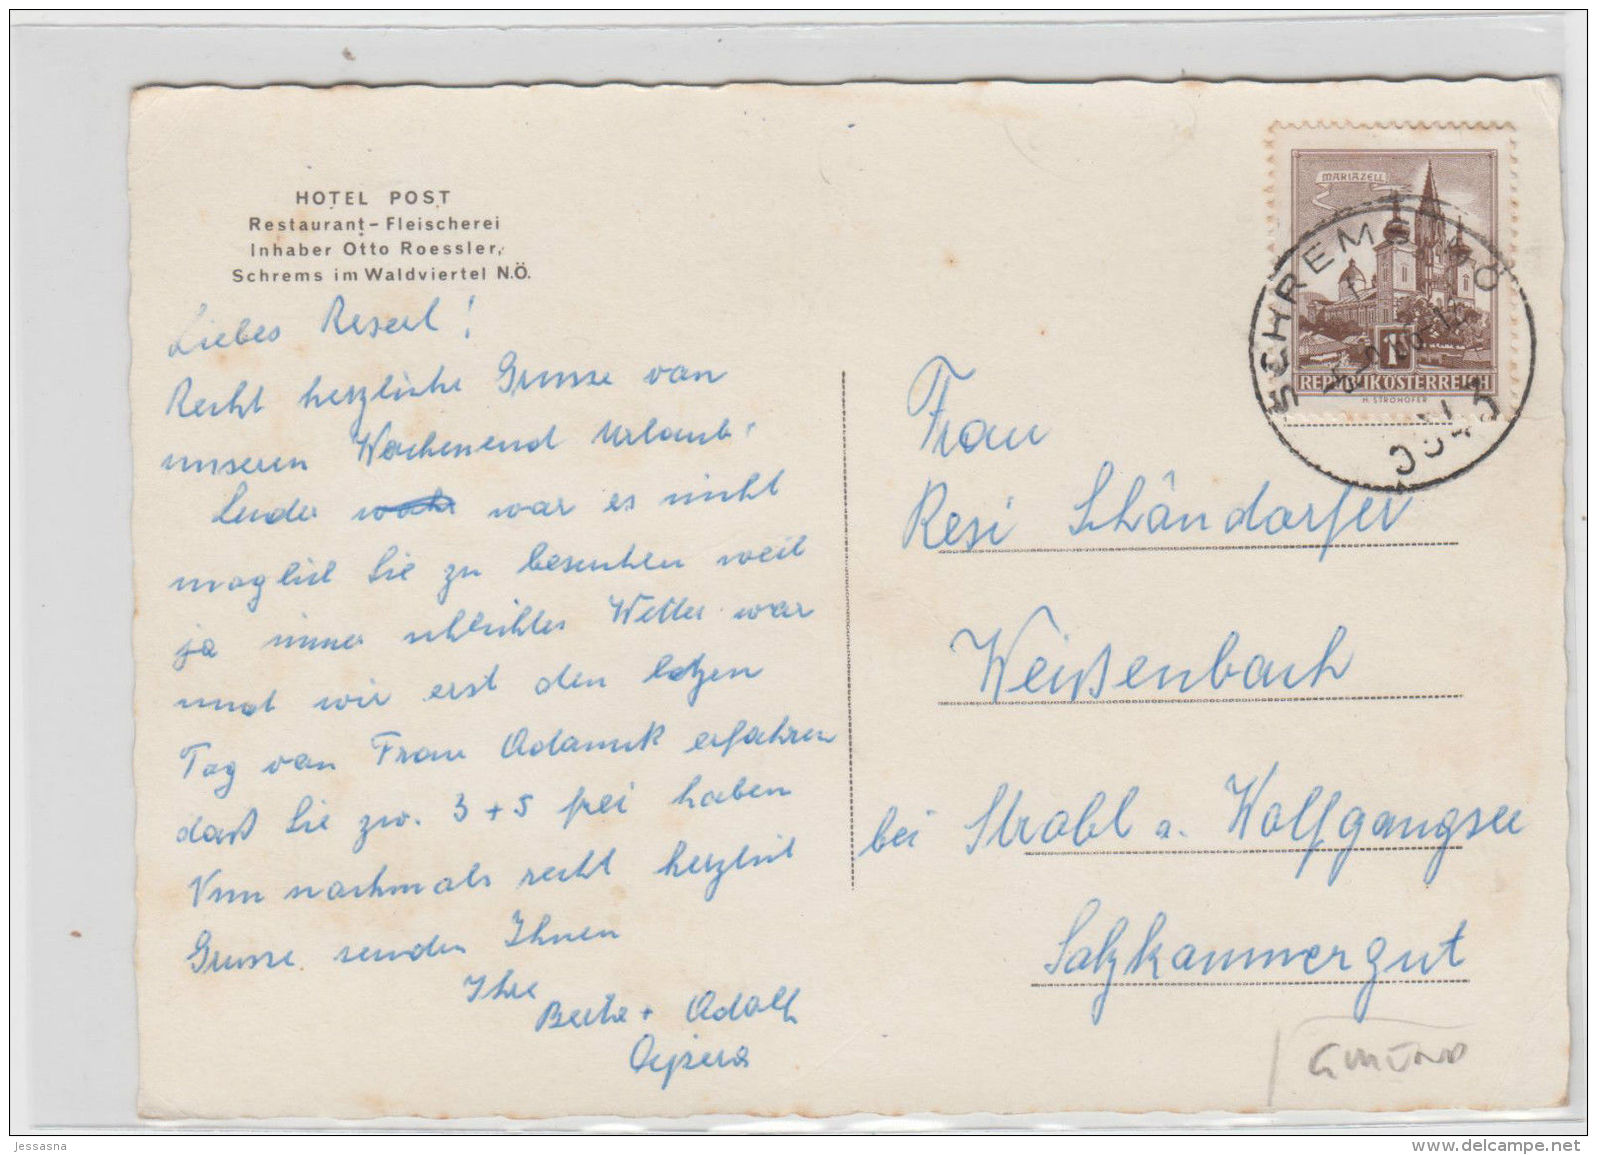 HOTEL POST
Restaurant-Fleischerei
Inhaber Otto Roessler,
Schrems im Waldviertel N.Ö.
Liebes Reserl!
Recht herzliche Grusse von
unseren Wochenend Urlaub.
Leider war es nicht
möglich Sie zu besuchen weil
ja immer schlechtes Wetter war
und wir erst den letzen
Tag von Frau Adamek erfahren
daß Sie zw. 3 + 5 frei haben
Nun nochmals recht herzlich
Grusse senden Ihnen
Ihre
Berta + Adolf
MARIAZELL
1
REPUBLIK ÖSTERREICH
H. STROHOFER
SCHREMS, NÖ
Frau
Resi Schöndorfer
Weißenbach
bei Strobl a. Wolfgangsee
Salzkammergut
GMÜND
jessasna
www.delcampe.net